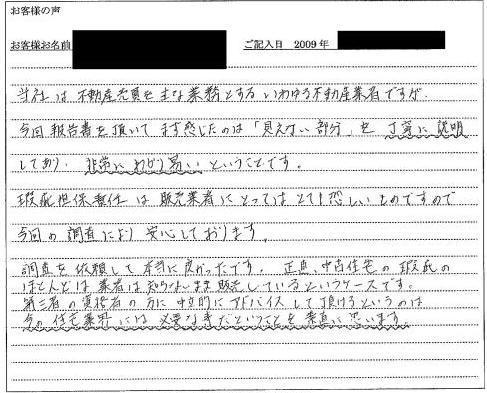 お客様の声
お客様お名前 ご記入日 2009年
当社は不動産売買を主な業務とするいわゆる不動産業者ですが、
今回報告書を頂いてまず感じたのは「見えない部分」を丁寧に説明
してあり、非常にわかり易いということです。
瑕疵担保責任は販売業者にとってはとても恐しいものですので
今回の調査により安心しております。
調査を依頼して本当に良かったです。正直、中古住宅の瑕疵の
ほとんどは業者は知らないまま販売しているというケースです。
第三者の資格者の方に中立的にアドバイスして頂けるというのは
今の住宅業界には必要な事だということを素直に思います